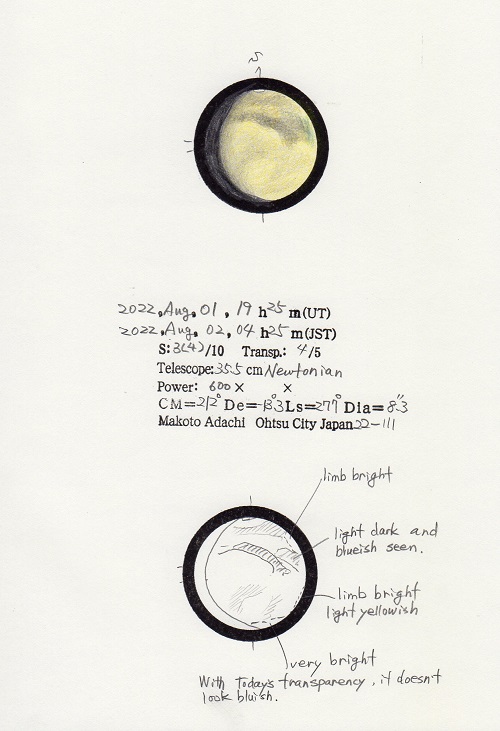 S
2022, Aug, 01, 19 h 25 m(UT)
2022, Aug, 02, 04 h 25 m(JST)
S: 3(4)/10 Transp.: 4/5
Telescope: 35.5 cm Newtonian
Power: 600 × ×
CM=212° De=-13°.3 Ls=277° Dia=8".3
Makoto Adachi Ohtsu City Japan 22-111
limb bright
light dark and
blueish seen.
limb bright
light yellowish
very bright
With Today's transparency, it doesn't
look bluish.